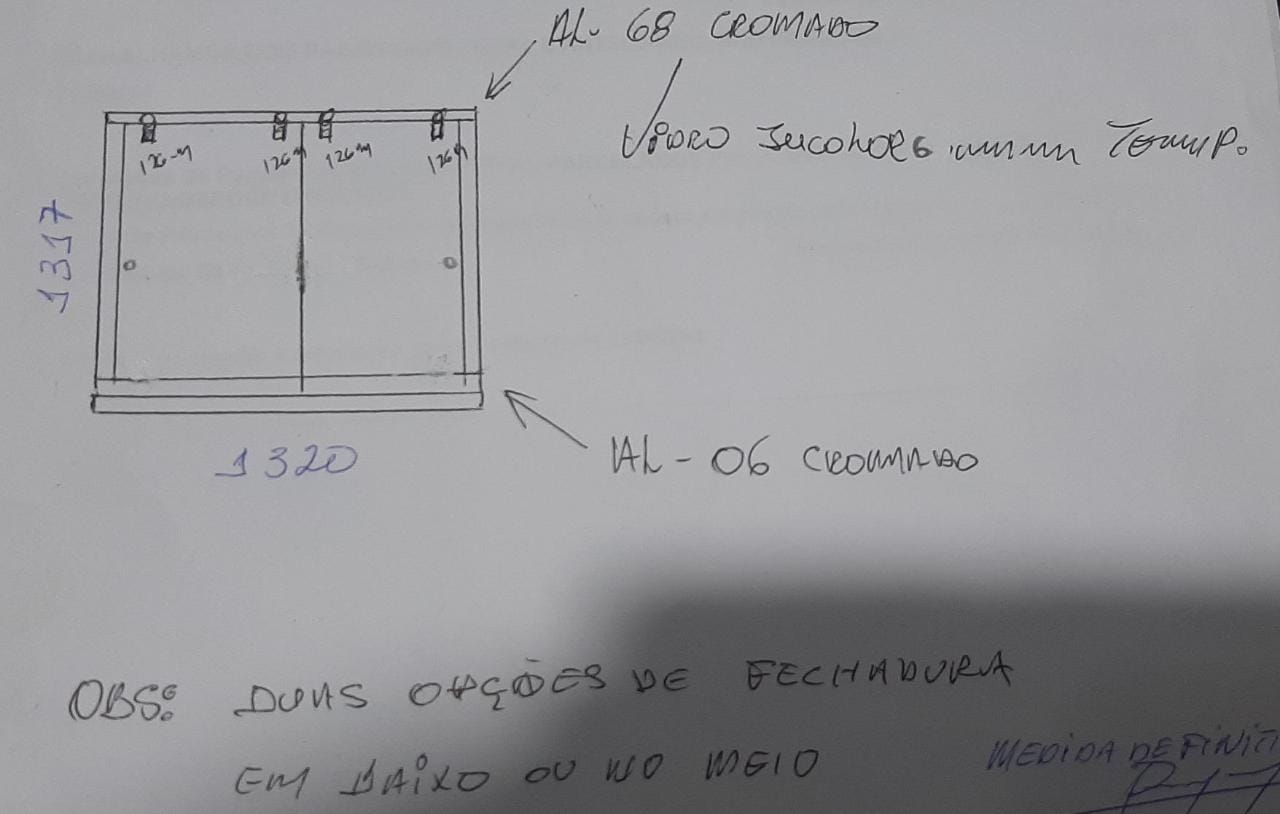 AL- 68 CROMADO
VIDRO INCOLOR 6 mm TEMP.
126-M 126M 126M 126M
1317
1320
AL-06 CROMADO
OBS: DUAS OPÇÕES DE FECHADURA
EM BAIXO OU NO MEIO
MEDIDA DEFINITI